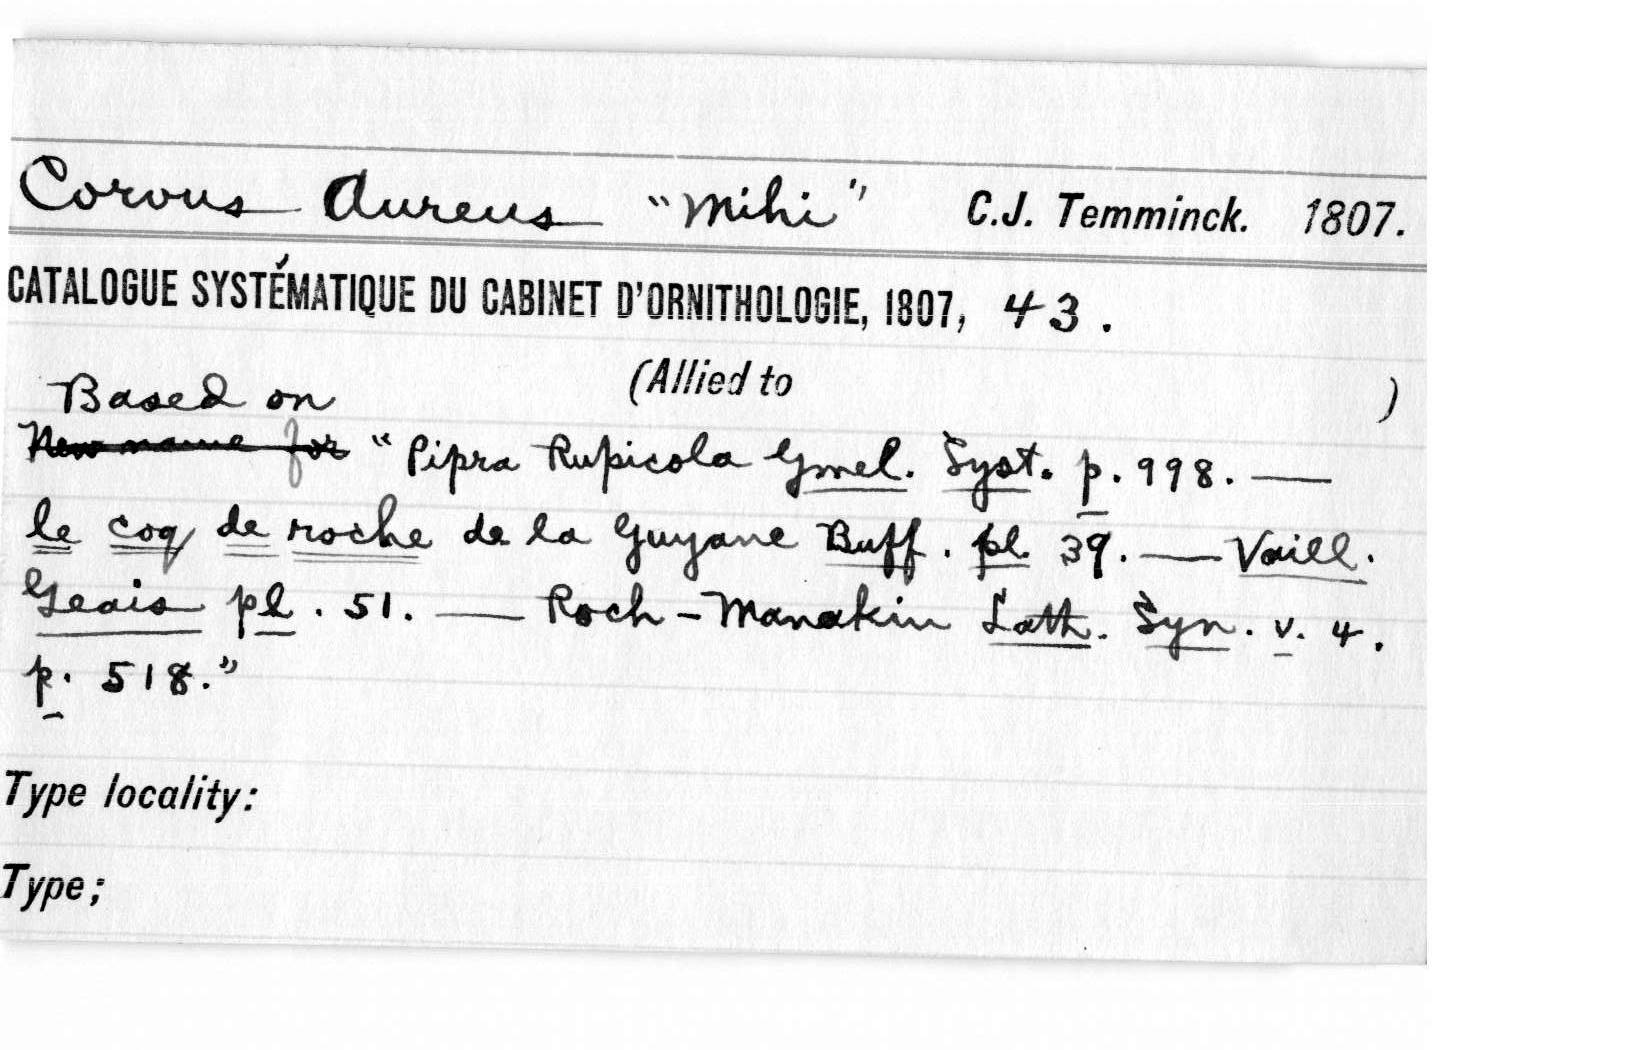 Corvus Aureus "mihi" C.J. Temminck. 1807.
CATALOGUE SYSTÉMATIQUE DU CABINET D'ORNITHOLOGIE, 1807, 43.
(Allied to )
Based on
New name for "Pipra Rupicola Gmel. Syst. p. 998. —
le coq de roche de la Guyane Buff. pl. 39. — Vaill.
Geais pl. 51. — Roch-Manakin Lath. Syn. v. 4.
p. 518."
Type locality:
Type;